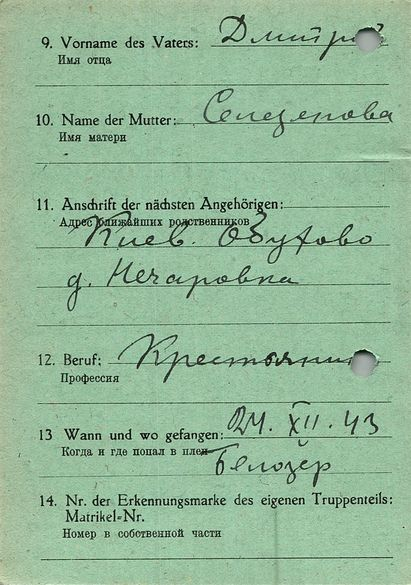 9. Vorname des Vaters: Дмитрий
Имя отца
10. Name der Mutter: Селезенова
Имя матери
11. Anschrift der nächsten Angehörigen:
Адрес ближайших родственников
Киев. Обухово
д. Нечаровка
12. Beruf: Крестьянин
Профессия
13 Wann und wo gefangen: 24. XII. 43
Когда и где попал в плен Белозёр
14. Nr. der Erkennungsmarke des eigenen Truppenteils:
Matrikel-Nr.
Номер в собственной части